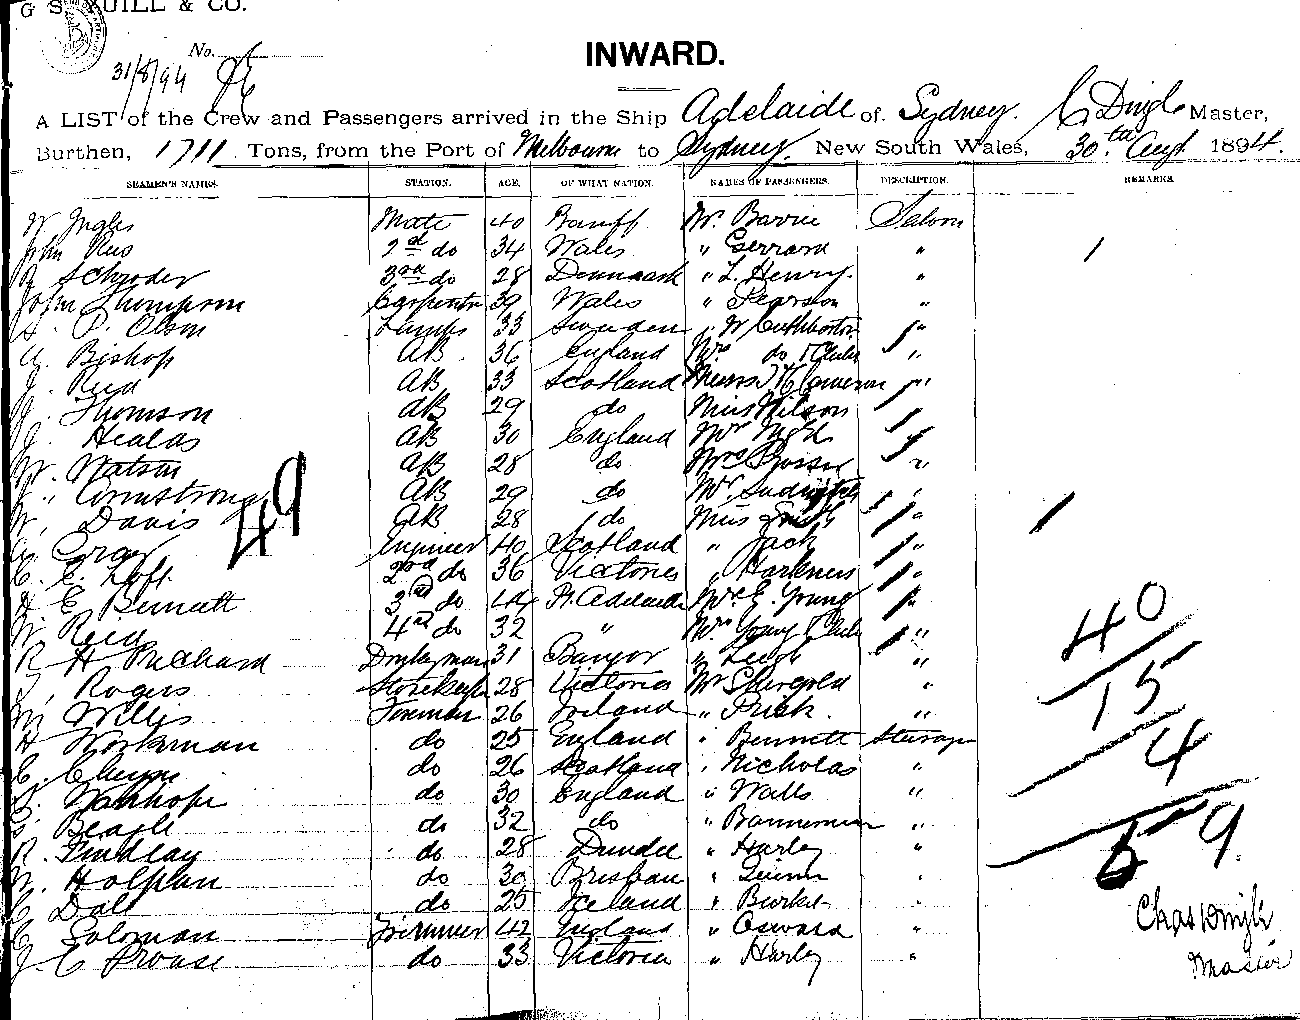 G S. YUILL & CO.
No.
31/8/94
INWARD.
A LIST of the Crew and Passengers arrived in the Ship Adelaide of Sydney. C Dingle Master,
Burthen, 1711 Tons, from the Port of Melbourne to Sydney. New South Wales, 30th Augt 1894.
SEAMEN'S NAMES. STATION. AGE. OF WHAT NATION. NAMES OF PASSENGERS. DESCRIPTION. REMARKS.
W Mate 40 Banff Mr. Barrie Saloon
John Rees 2nd do 34 Wales " Gerrard "
Schroder 3rd do 28 Denmark " L. Henry "
John Thompson Carpenter 39 Wales " Pearson "
P. Olson Lamps 33 Sweden " W Cuthbertson "
A. Bishop AB 36 England Mrs do "
J. Reid AB 33 Scotland Cameron "
J. Thomson AB 29 do Miss Wilson "
J. AB 30 England Mr "
W. Watson AB 28 do Mrs "
J. Armstrong AB 29 do Mr "
W. Davis AB 28 do Miss "
49
Engineer 40 Scotland " Jack "
C. E. Loft 2nd do 36 Victoria " Harkness "
E. Bennett 3rd do 44 Pt. Adelaide E. Young "
W. Reid 4th do 32 " Mrs Young "
R H Prichard Donkeyman 31 Bangor " "
Rogers Storekeeper 28 Victoria Mr Shergold "
W. Willis Fireman 26 Ireland " "
Workman do 25 England " Bennett Steerage
C. do 26 Scotland " Nicholas "
do 30 England " Walls "
Beagle do 32 do " Bannerman "
R. Findlay do 28 Dundee " Harley "
do 30 Brisbane " Quinn "
do 25 Iceland " Burke "
Soloman Trimmer 42 England " Osward "
J. C Prouse do 33 Victoria " Harley "
40
15
4
59
Chas Dingle
Master